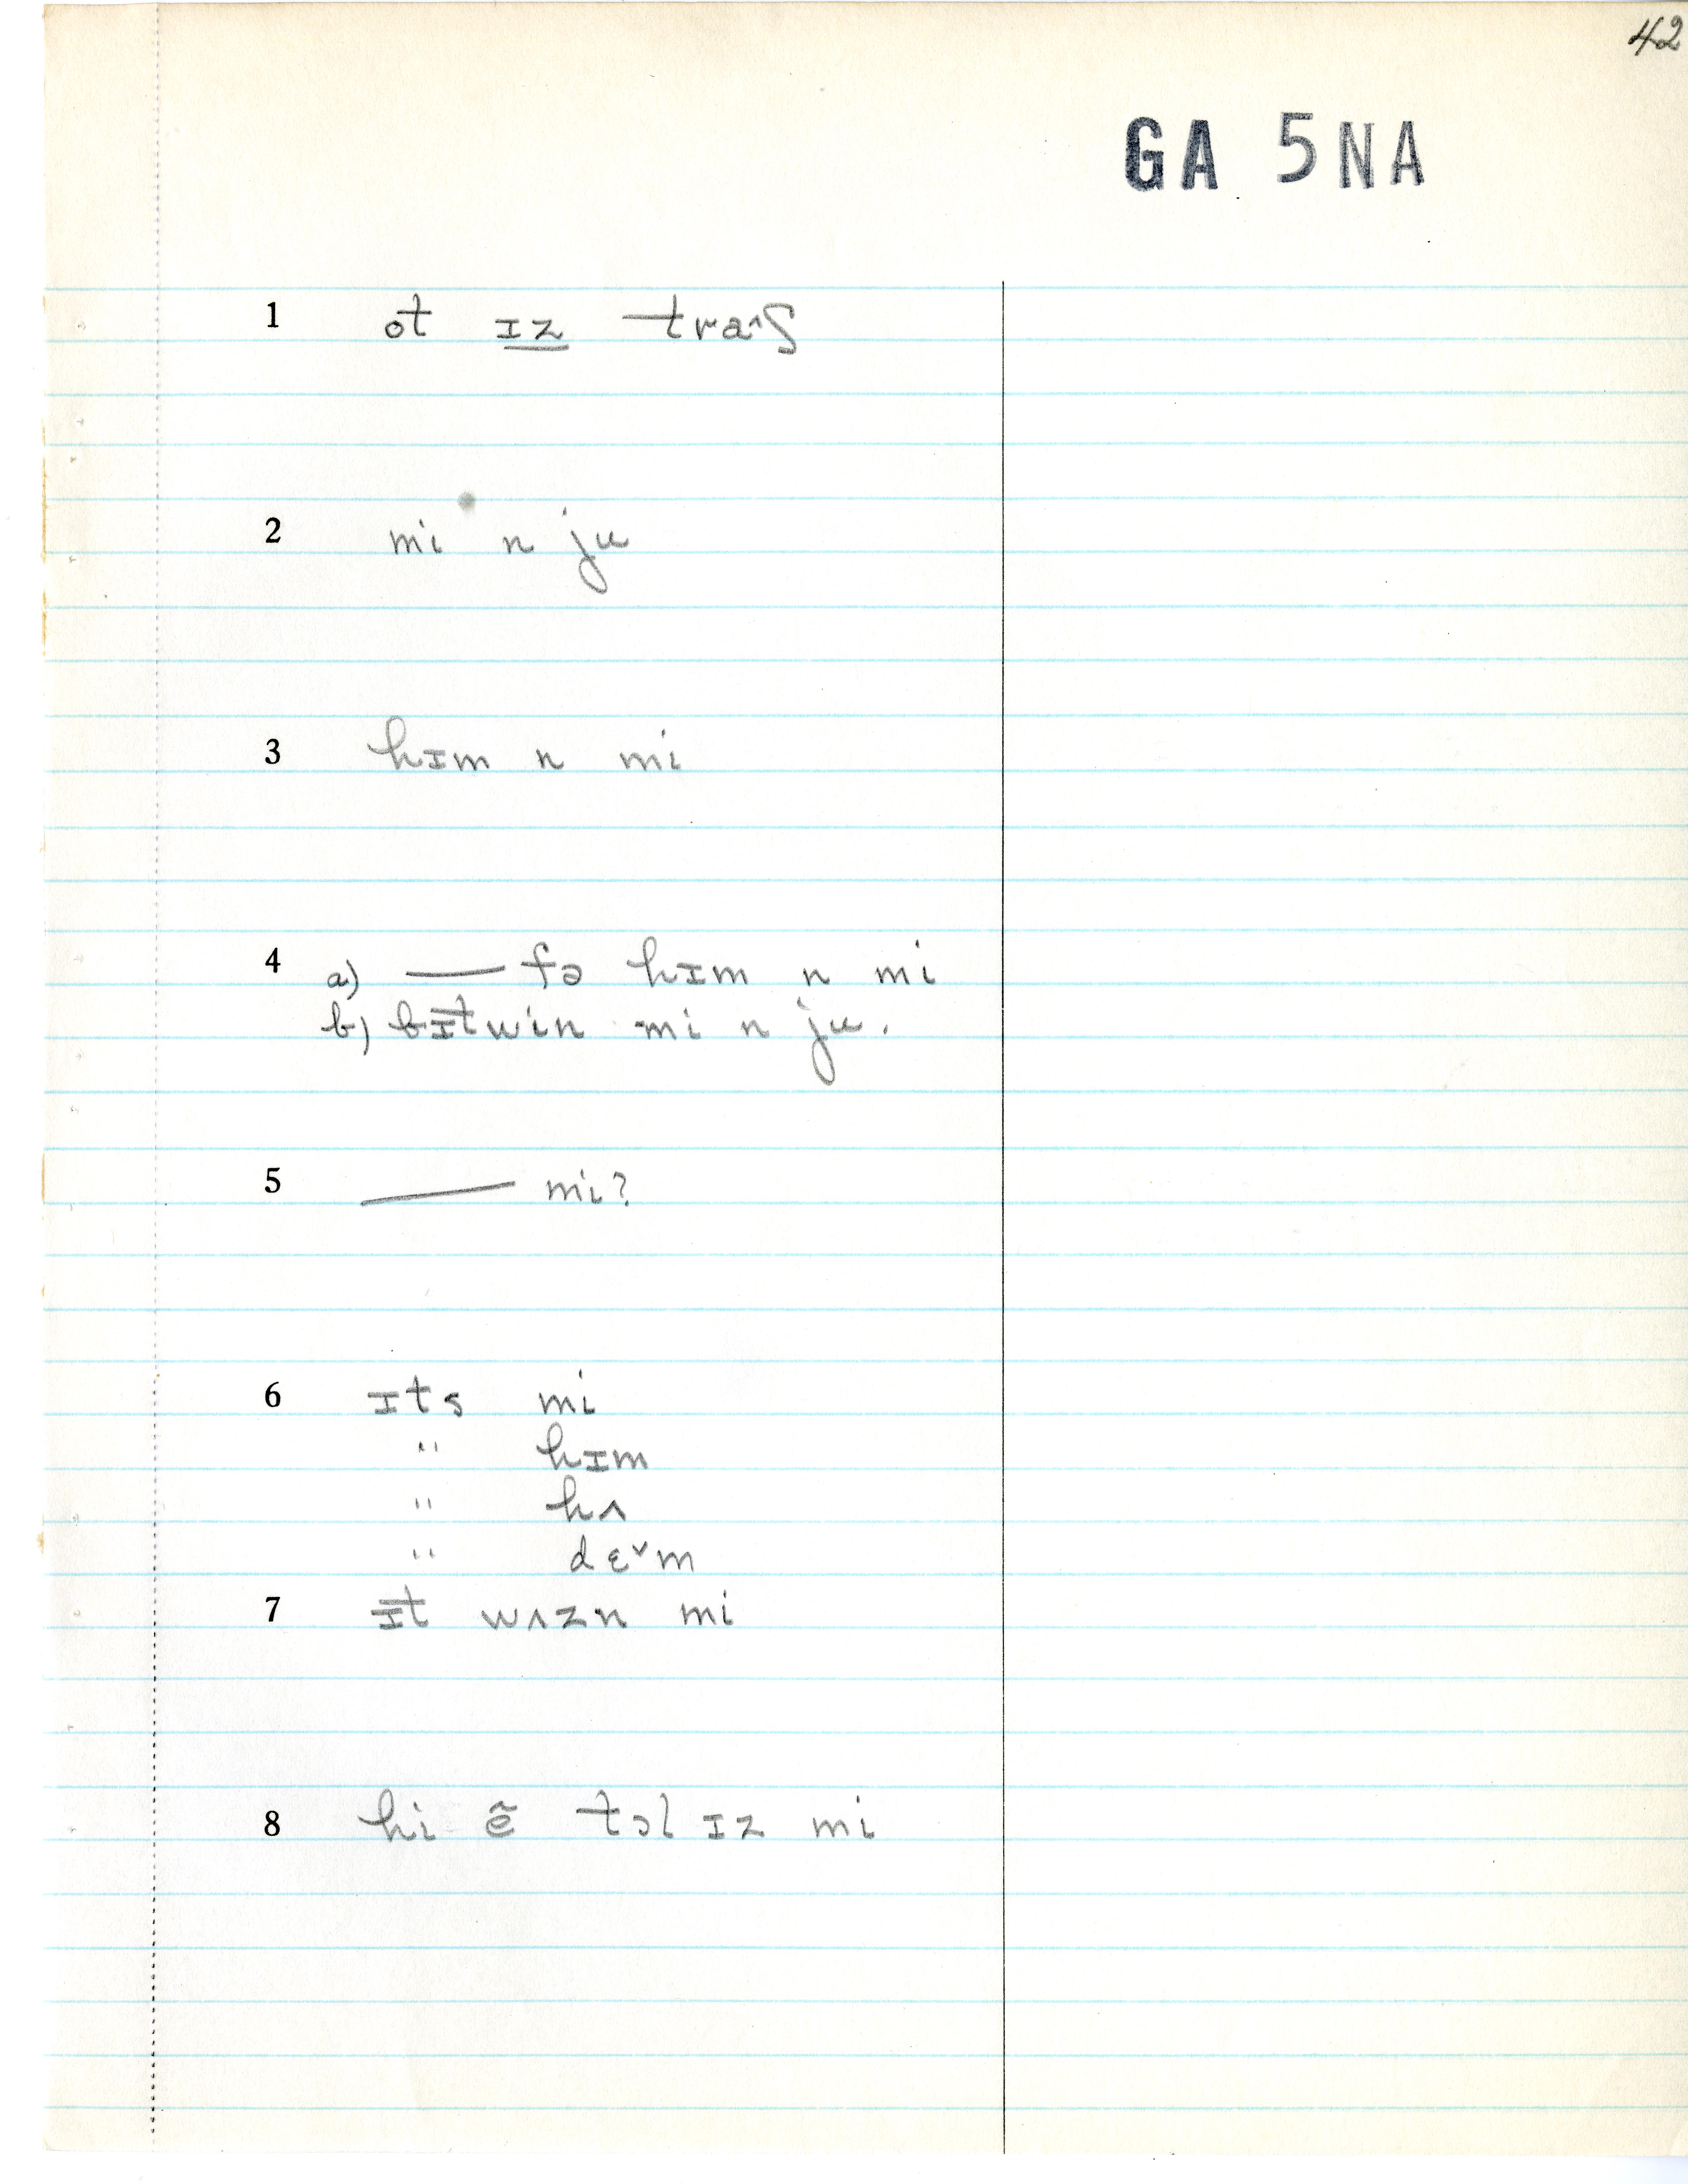 42
GA 5NA
1 ot ɪz traˆʃ
2 mi n ju
3 hɪm n mi
4 a) — fə hɪm n mi
b) bɪtwin mi n ju.
5 — mi?
6 ɪts mi
" hɪm
" hʌ
" dɛˇm
7 ɪt wʌzn mi
8 hi ẽ tɔl ɪz mi